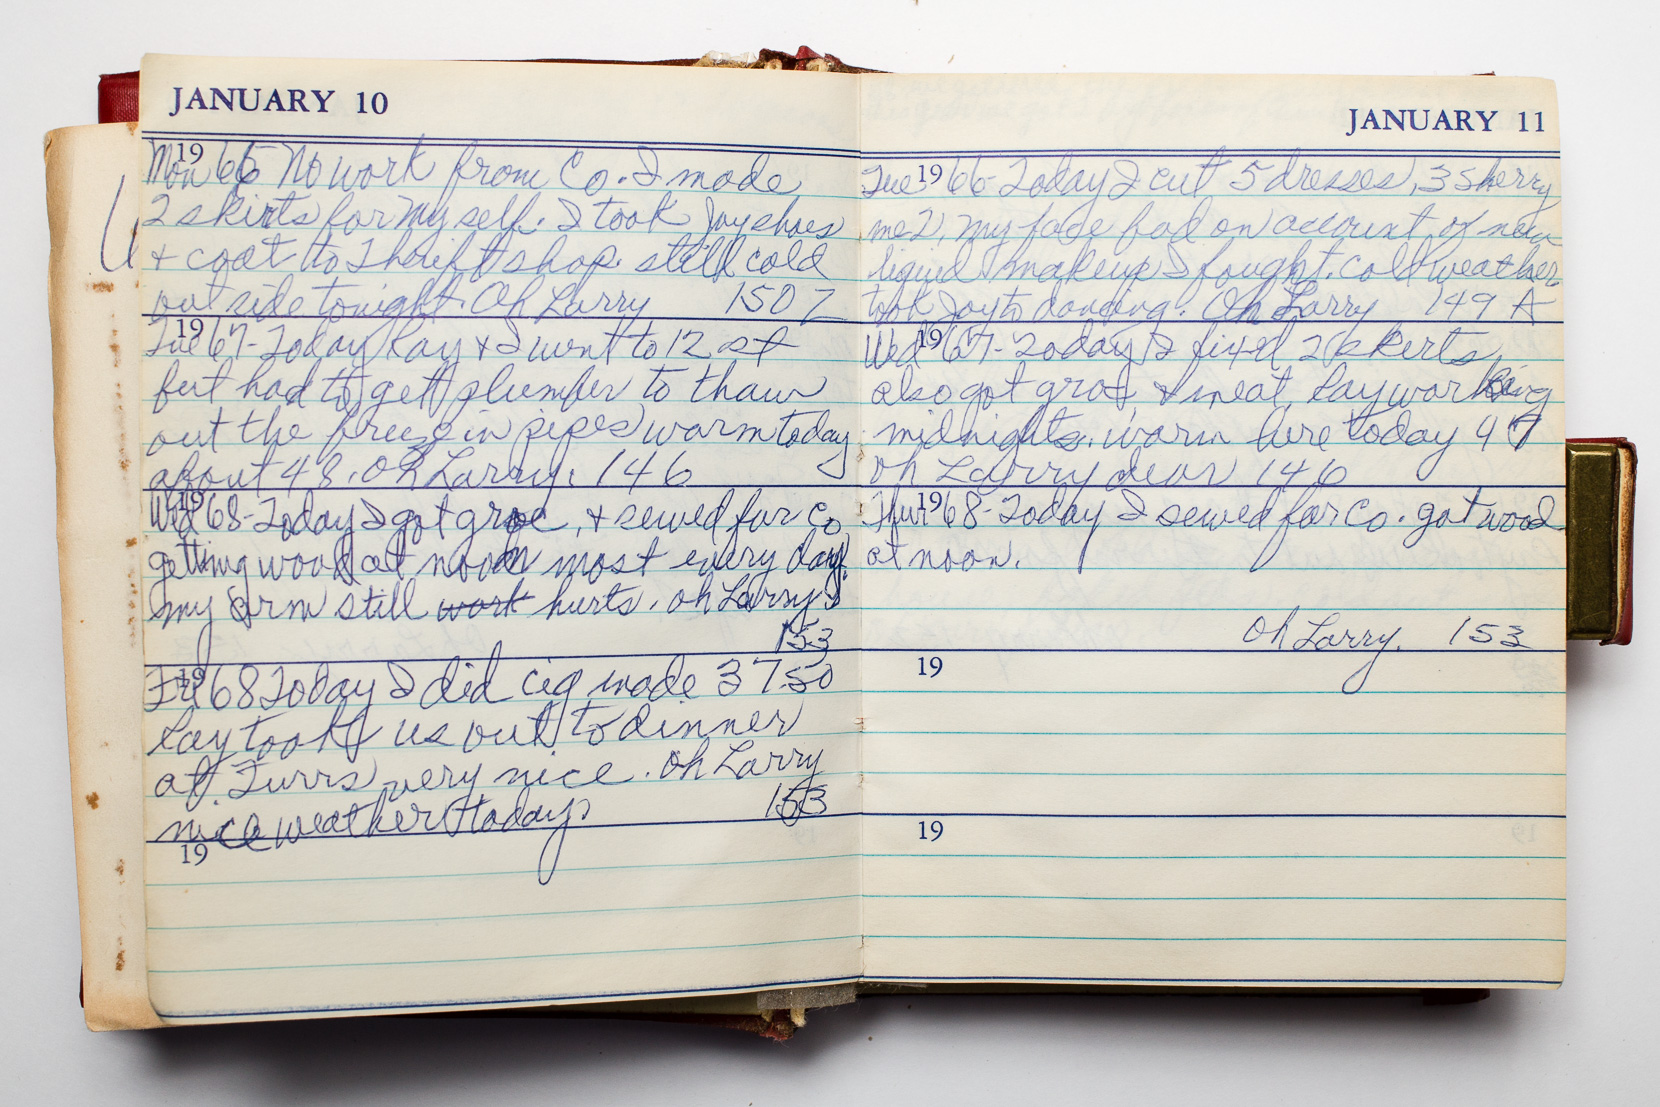 JANUARY 10
19
Mon 66 No work from Co. I made
2 skirts for myself. I took Joy shoes
+ coat to Thrift shop. still cold
out side tonight. Oh Larry 150 Z
19
Tue 67- Today Ray + I went to 12 st
but had to get plumber to thaw
out the freeze in pipes warm today
about 48. Oh Larry. 146
19
Wed 68- Today I got groc, + sewed for Co
getting wood at noon most every day.
my arm still work hurts. oh Larry
153
19
Fri 68 Today I did cig made 37.50
Ray took us out to dinner
at Furrs very nice. Oh Larry
153
nice weather today
19
JANUARY 11
19
Tue 66- Today I cut 5 dresses, 3 Sherry
me 2, my face bad on account of new
liquid makeup I bought. cold weather
took Joy to dancing. Oh Larry 149 A
19
Wed 67- Today I fixed 2 skirts,
also got groc & meat, Ray working
midnights. warm here today 47
Oh Larry dear 146
19
Thur 68- Today I sewed for Co. got wood
at noon.
Oh Larry. 153
19
19